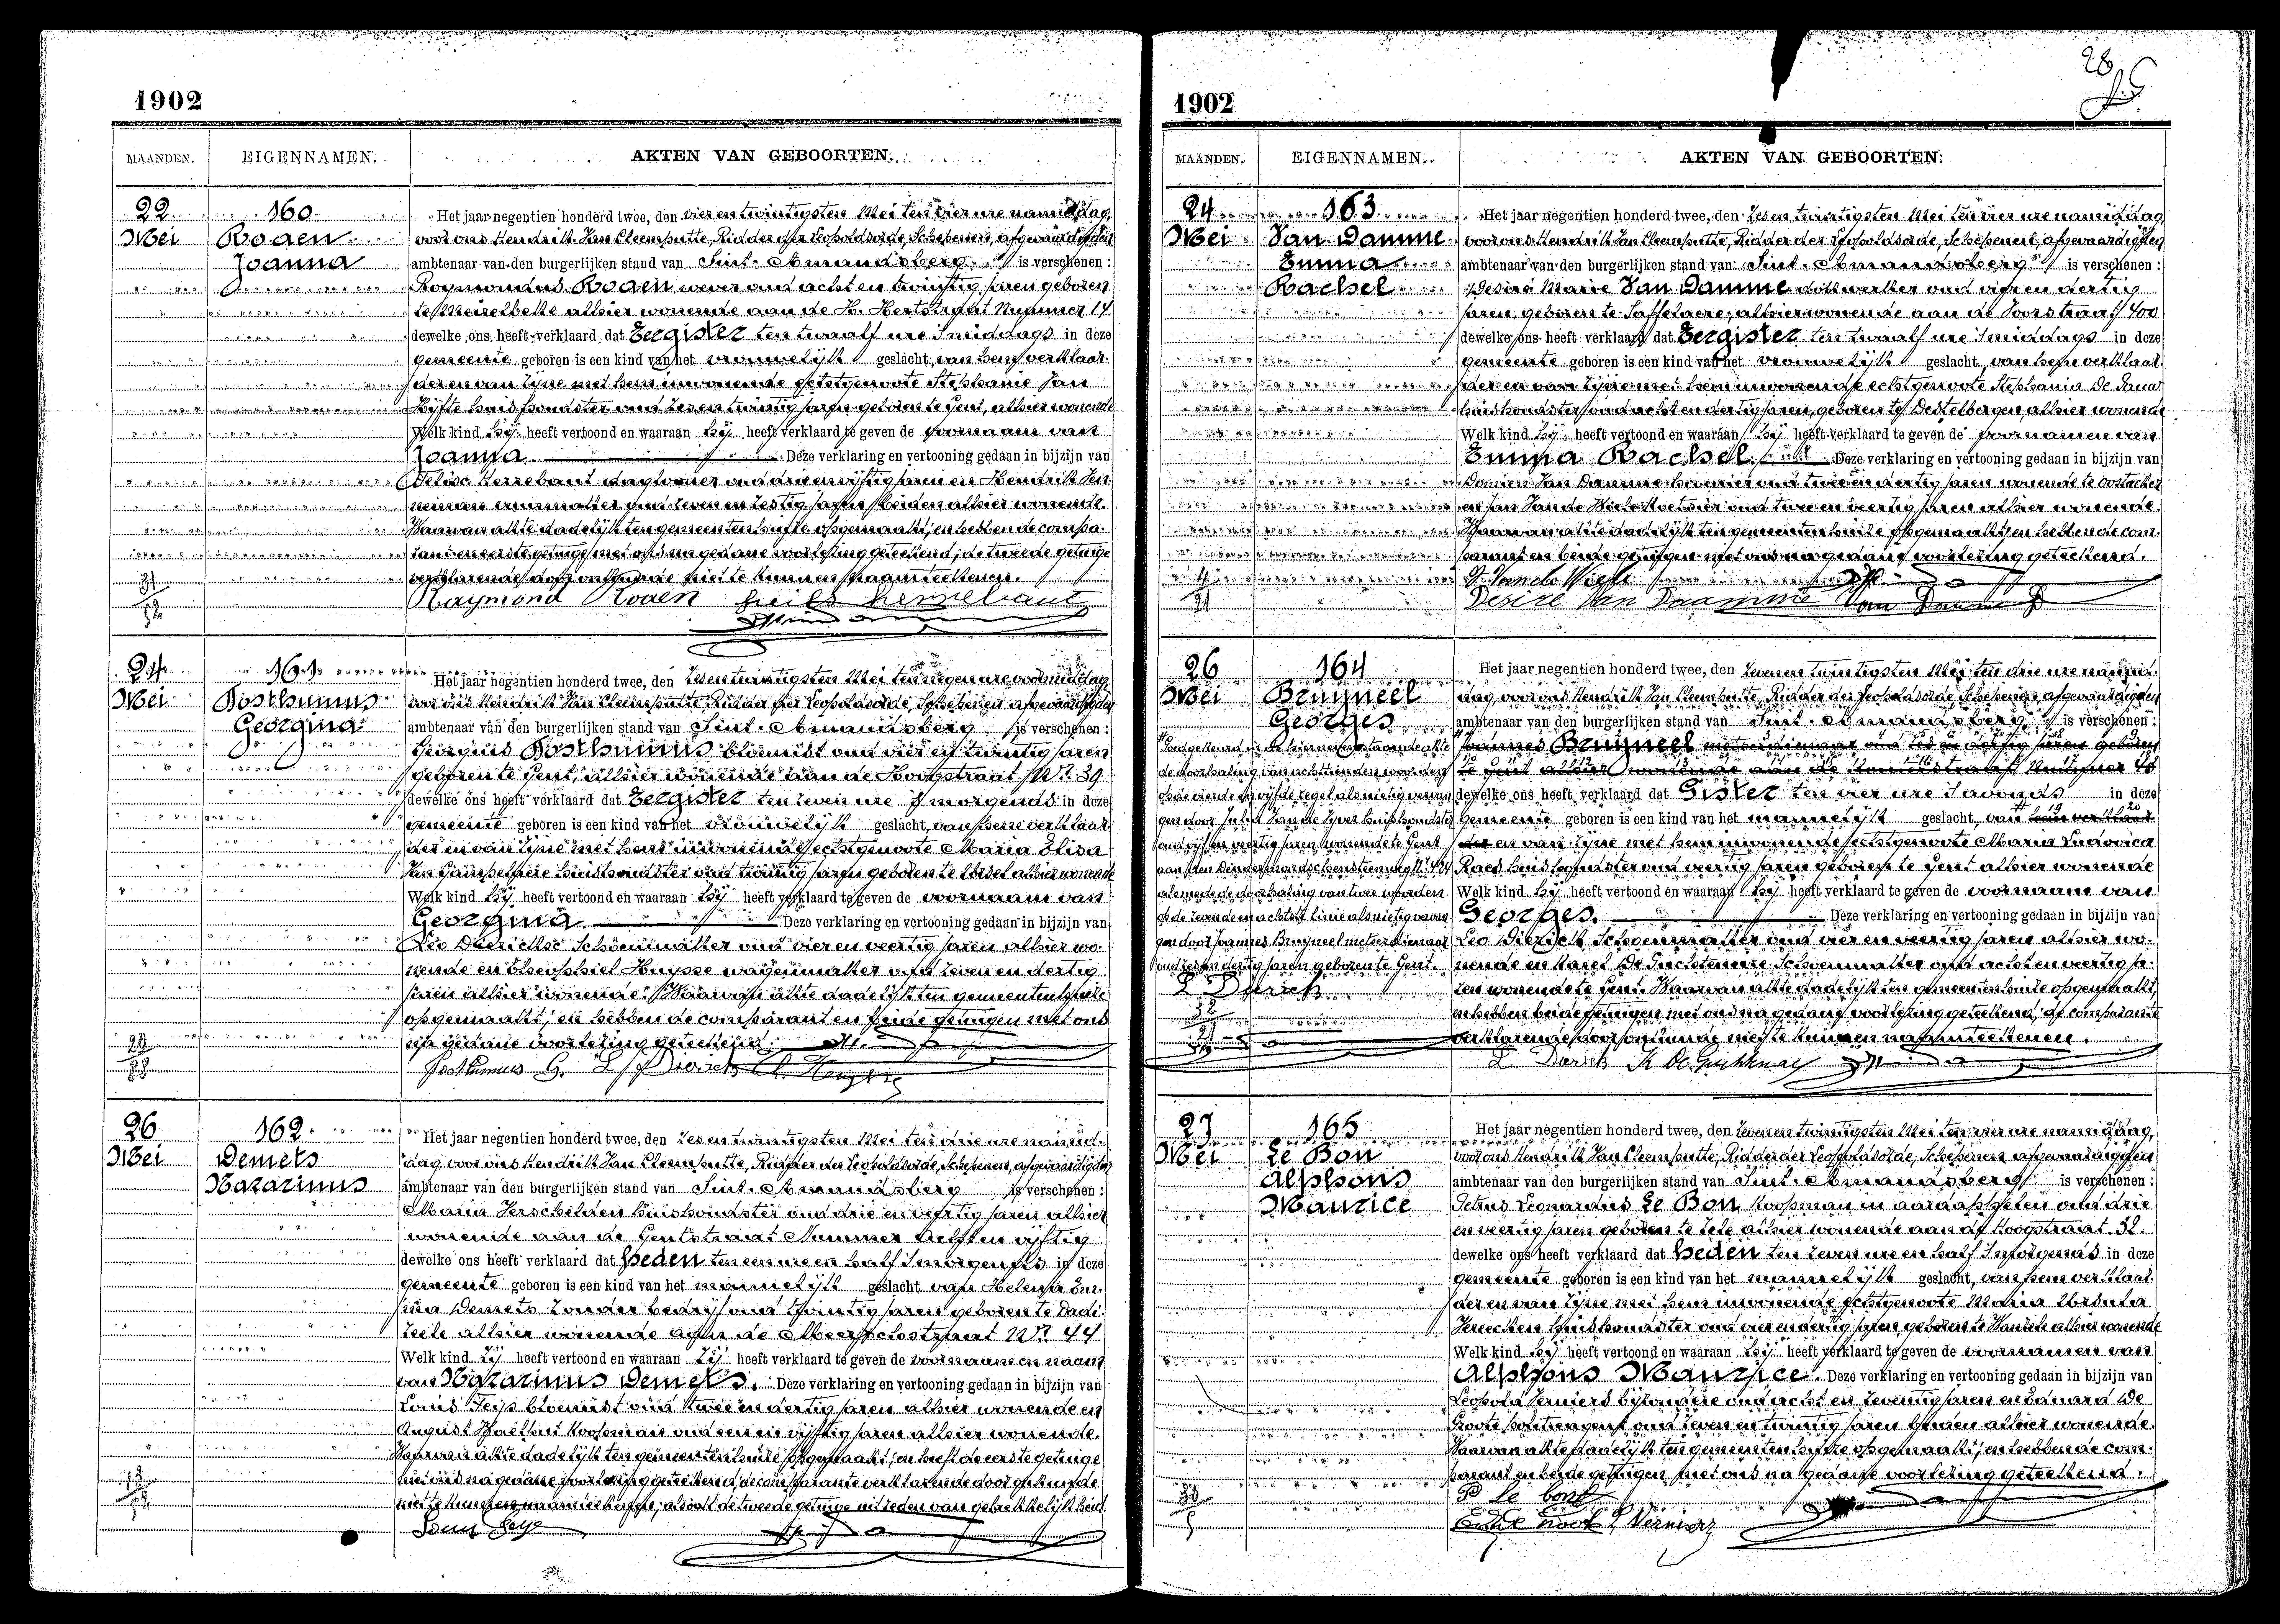 1902
MAANDEN. EIGENNAMEN. AKTEN VAN GEBOORTEN.
22 Mei
160
Roaen
Joanna
Het jaar negentien honderd twee, den vier en twintigsten Mei ten vier ure namiddag,
voor ons Hendrik Van Cleemputte, Ridder der Leopoldsorde, Schepenen, afgevaardigden
ambtenaar van den burgerlijken stand van Sint-Amandsberg is verschenen:
Raymondus wever oud acht en twintig jaren geboren
te Meirelbeke alhier wonende aan de H. Hertstraat Nummer 14
dewelke ons heeft verklaard dat Eergister ten twaalf ure smiddags in deze
gemeente geboren is een kind van het vrouwelijk geslacht, van hem verklaar-
der en van zijne met hem inwonende echtgenoote Stephanie Van
Hyfte huishoudster oud zes en twintig jaren geboren te Gent, alhier wonende
Welk kind hij heeft vertoond en waaraan hij heeft verklaard te geven de voornaam van
Joanna. Deze verklaring en vertooning gedaan in bijzijn van
Kerrebaut dagloner oud drie en vijftig jaren en Hendrik
oud zeven en zestig jaren beiden alhier wonende.
Waarvan akte dadelijk ten gemeentenhuize opgemaakt, en hebben de compa-
rant en eerste getuige met ons na gedane voorlezing geteekend, de tweede getuige
verklarende door onkunde niet te kunnen naamteekenen.
Raymond
24 Mei
161
Posthumus
Georgina
Het jaar negentien honderd twee, den zes en twintigsten Mei ten negen ure voormiddag
voor ons Hendrik Van Cleemputte, Ridder der Leopoldsorde, Schepenen afgevaardigden
ambtenaar van den burgerlijken stand van Sint-Amandsberg is verschenen:
Georgius Posthumus bloemist oud vier en twintig jaren
geboren te Gent, alhier wonende aan de Hoogstraat Nr. 39
dewelke ons heeft verklaard dat Eergister ten zeven ure smorgends in deze
gemeente geboren is een kind van het vrouwelijk geslacht, van hem verklaar-
der en van zijne met hem inwonende echtgenoote Maria Elisa
huishoudster oud twintig jaren geboren te alhier wonende
Welk kind hij heeft vertoond en waaraan hij heeft verklaard te geven de voornaam van
Georgina Deze verklaring en vertooning gedaan in bijzijn van
Leo Dierickx Schoenmaker oud vier en veertig jaren alhier wo-
nende en Theophiel Huysse wagenmaker oud zeven en dertig
jaren alhier wonende. Waarvan akte dadelijk ten gemeentenhuize
opgemaakt, en hebben de comparant en beide getuigen met ons
na gedane voorlezing geteekend.
Posthumus G. L. Dierick
26 Mei
162
Demets
Nazarinus
Het jaar negentien honderd twee, den zes en twintigsten Mei ten drie ure namid-
dag voor ons Hendrik Van Cleemputte, Ridder der Leopoldsorde, Schepenen, afgevaardigden
ambtenaar van den burgerlijken stand van Sint-Amandsberg is verschenen:
Maria Verschelden huishoudster oud drie en veertig jaren alhier
wonende aan de Gentstraat Nummer
dewelke ons heeft verklaard dat heden ten een ure en half smorgends in deze
gemeente geboren is een kind van het mannelijk geslacht van Helena
Demets zonder bedrijf oud twintig jaren geboren te Dadi-
zeele alhier wonende aan de Nr. 44
Welk kind zij heeft vertoond en waaraan zij heeft verklaard te geven de voornaam en naam
van Nazarinus Demets. Deze verklaring en vertooning gedaan in bijzijn van
Louis Feys bloemist oud twee en dertig jaren alhier wonende en
August koopman oud een en vijftig jaren alhier wonende.
Waarvan akte dadelijk ten gemeentenhuize opgemaakt, en heeft de eerste getuige
met ons na gedane voorlezing geteekend, de comparante verklarende door onkunde
niet te kunnen naamteekenen, alsook de tweede getuige uit reden van gebrekkelijkheid.
1902
28
MAANDEN. EIGENNAMEN. AKTEN VAN GEBOORTEN.
24 Mei
163
Van Damme
Emma
Rachel
Het jaar negentien honderd twee, den zes en twintigsten Mei ten vier ure namiddag
voor ons Hendrik Van Cleemputte, Ridder der Leopoldsorde, Schepenen, afgevaardigden
ambtenaar van den burgerlijken stand van Sint-Amandsberg is verschenen:
Desiré Marie Van Damme dokwerker oud vijf en dertig
jaren, geboren te Saffelaere, alhier wonende aan de 400
dewelke ons heeft verklaard dat Eergister ten twaalf ure smiddags in deze
gemeente geboren is een kind van het vrouwelijk geslacht, van hem verklaar-
der en van zijne met hem inwonende echtgenoote Stephania De
huishoudster oud acht en dertig jaren, geboren te Destelbergen, alhier wonende
Welk kind hij heeft vertoond en waaraan hij heeft verklaard te geven de voornamen van
Emma Rachel. Deze verklaring en vertooning gedaan in bijzijn van
Van Damme oud twee en dertig jaren wonende te Oostacker
en Jan Van de Wiele oud twee en veertig jaren alhier wonende.
Waarvan akte dadelijk ten gemeentenhuize opgemaakt, en hebben de com-
parant en beide getuigen met ons na gedane voorlezing geteekend.
Desiré Van Daamme
26 Mei
164
Bruyneel
Georges
Het jaar negentien honderd twee, den zeven en twintigsten Mei ten drie ure namid-
dag, voor ons Hendrik Van Cleemputte, Ridder der Leopoldsorde, Schepenen, afgevaardigden
ambtenaar van den burgerlijken stand van Sint-Amandsberg is verschenen:
Joannes Bruyneel metserdienaar oud zes en dertig jaren geboren
te Gent alhier wonende aan de Nummer
dewelke ons heeft verklaard dat Gister ten vier ure savonds in deze
gemeente geboren is een kind van het mannelijk geslacht, van hem verklaar-
der en van zijne met hem inwonende echtgenoote Maria Ludovica
Raes huishoudster oud veertig jaren geboren te Gent alhier wonende
Welk kind hij heeft vertoond en waaraan hij heeft verklaard te geven de voornaam van
Georges. Deze verklaring en vertooning gedaan in bijzijn van
Leo Dierick Schoenmaker oud vier en veertig jaren alhier wo-
nende en Karel De Schoenmaker oud acht en veertig ja-
ren wonende te Gent. Waarvan akte dadelijk ten gemeentenhuize opgemaakt,
en hebben beide getuigen met ons na gedane voorlezing geteekend, de comparante
verklarende door onkunde niet te kunnen naamteekenen.
Goedgekeurd in de hiernevenstaande akte
de doorhaling van achttien woorden
op de vierde en vijfde regel als nietig vervan-
gen door huishoudster
oud vijf en veertig jaren wonende te Gent
aan den Dendermondschensteenweg
alsmede de doorhaling van twee woorden
op de zevende en achtste linie als nietig vervan-
gen door Joannes Bruyneel metserdienaar
oud zes en dertig jaren geboren te Gent.
L. Dierick
L. Dierick
27 Mei
165
Le Bon
Alphons
Maurice
Het jaar negentien honderd twee, den zeven en twintigsten Mei ten vier ure namiddag,
voor ons Hendrik Van Cleemputte, Ridder der Leopoldsorde, Schepenen afgevaardigden
ambtenaar van den burgerlijken stand van Sint-Amandsberg is verschenen:
Petrus Leonardus Le Bon, koopman in aardappelen oud drie
en veertig jaren geboren te Zele alhier wonende aan de Hoogstraat 32.
dewelke ons heeft verklaard dat heden ten zeven ure en half smorgends in deze
gemeente geboren is een kind van het mannelijk geslacht, van hem verklaar-
der en van zijne met hem inwonende echtgenoote Maria Ursula
Vereecken huishoudster oud vier en dertig jaren, geboren te alhier wonende
Welk kind hij heeft vertoond en waaraan hij heeft verklaard te geven de voornamen van
Alphons Maurice. Deze verklaring en vertooning gedaan in bijzijn van
Leopold Verniers bijzondere oud acht en zeventig jaren en Eduard De
Groote politieagent oud zeven en twintig jaren beiden alhier wonende.
Waarvan akte dadelijk ten gemeentenhuize opgemaakt, en hebben de com-
parant en beide getuigen met ons na gedane voorlezing geteekend.
P Le bon
L Verniers